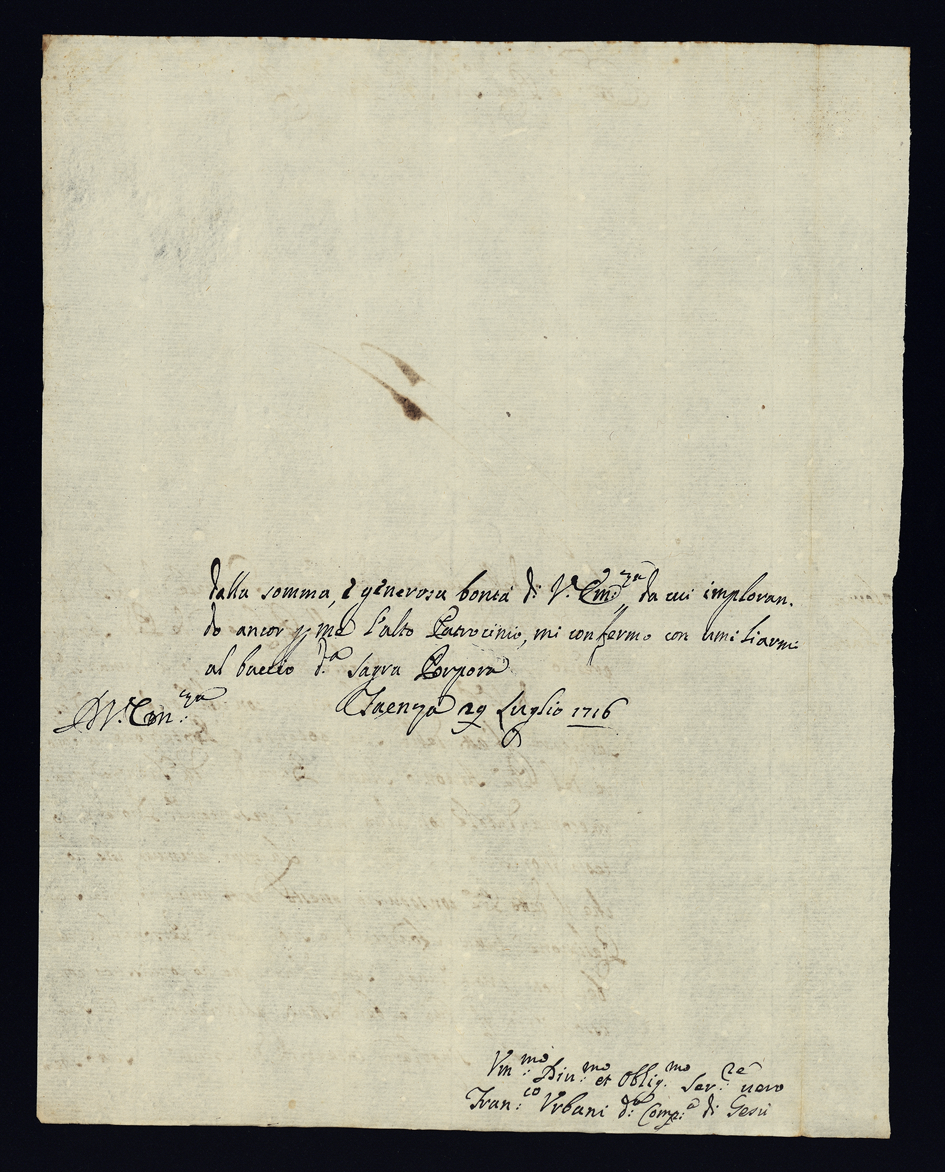 dalla somma, e generosa bontà di V. Em:za da cui imploran-
do ancor p me l'alto Patrocinio, mi confermo con umiliarmi
al baccio d:a Sagra Porpora
Faenza 29 Luglio 1716
D V. Em:za
Um:mo Div:mo et Oblig:mo Ser:re vero
Fran:co Urbani d:a Comp:a di Gesù